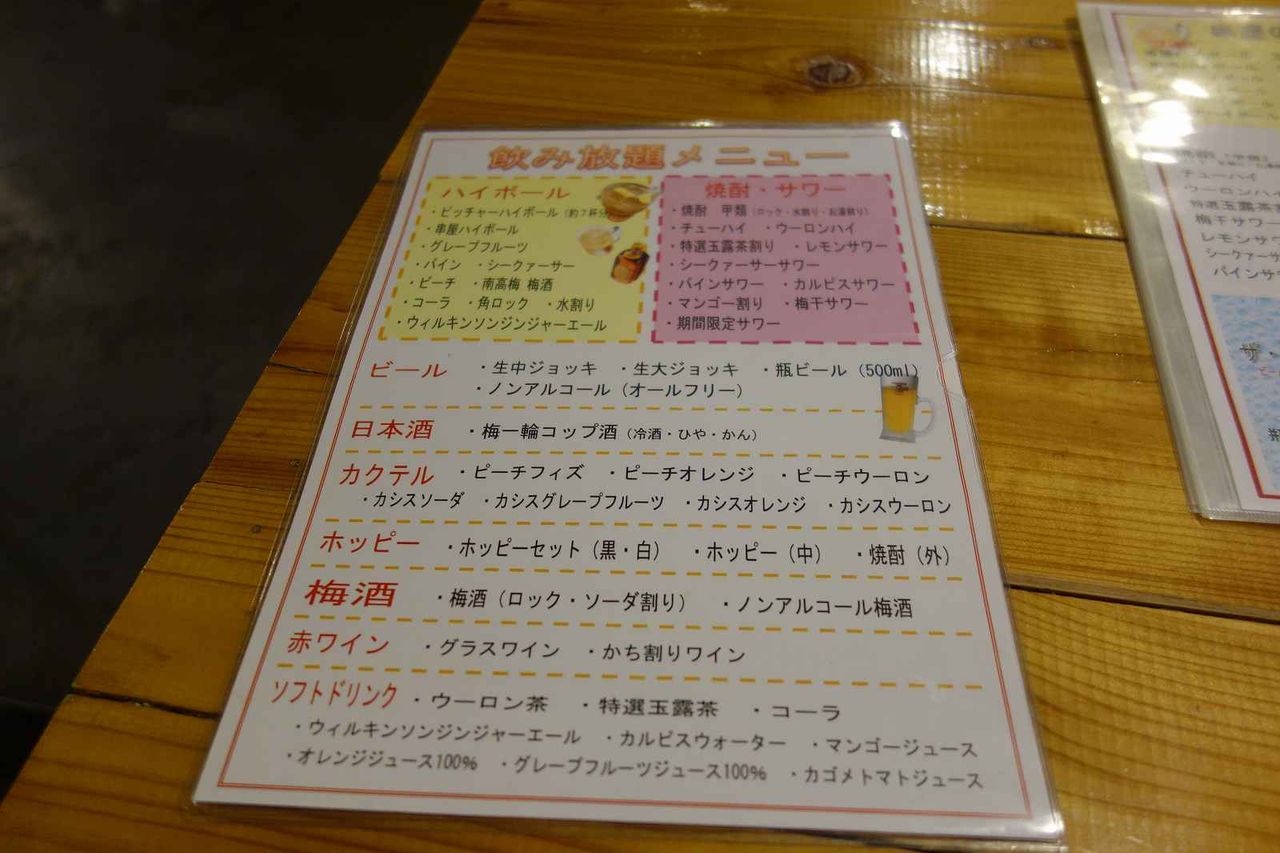 飲み放題メニュー
ハイボール
・ピッチャーハイボール（約７杯分）
・串屋ハイボール
・グレープフルーツ
・パイン ・シークァーサー
・ピーチ ・南高梅 梅酒
・コーラ ・角ロック ・水割り
・ウィルキンソンジンジャーエール
焼酎・サワー
・焼酎 甲類（ロック・水割り・お湯割り）
・チューハイ ・ウーロンハイ
・特選玉露茶割り ・レモンサワー
・シークァーサーサワー
・パインサワー ・カルピスサワー
・マンゴー割り ・梅干サワー
・期間限定サワー
ビール ・生中ジョッキ ・生大ジョッキ ・瓶ビール（500ml）
・ノンアルコール（オールフリー）
日本酒 ・梅一輪コップ酒（冷酒・ひや・かん）
カクテル ・ピーチフィズ ・ピーチオレンジ ・ピーチウーロン
・カシスソーダ ・カシスグレープフルーツ ・カシスオレンジ ・カシスウーロン
ホッピー ・ホッピーセット（黒・白） ・ホッピー（中） ・焼酎（外）
梅酒 ・梅酒（ロック・ソーダ割り） ・ノンアルコール梅酒
赤ワイン ・グラスワイン ・かち割りワイン
ソフトドリンク ・ウーロン茶 ・特選玉露茶 ・コーラ
・ウィルキンソンジンジャーエール ・カルピスウォーター ・マンゴージュース
・オレンジジュース100% ・グレープフルーツジュース100% ・カゴメトマトジュース
チューハイ
ウーロンハイ
特選玉露茶
梅干サワー
レモンサワ
シークァーサ
パインサワ